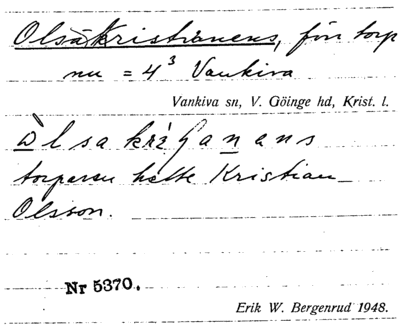 Olsakristianens, förr torp
nu = 4³ Vankiva
Vankiva sn, V. Göinge hd, Krist. l.
torparen hette Kristian
Olsson.
Nr 5370.
Erik W. Bergenrud 1948.